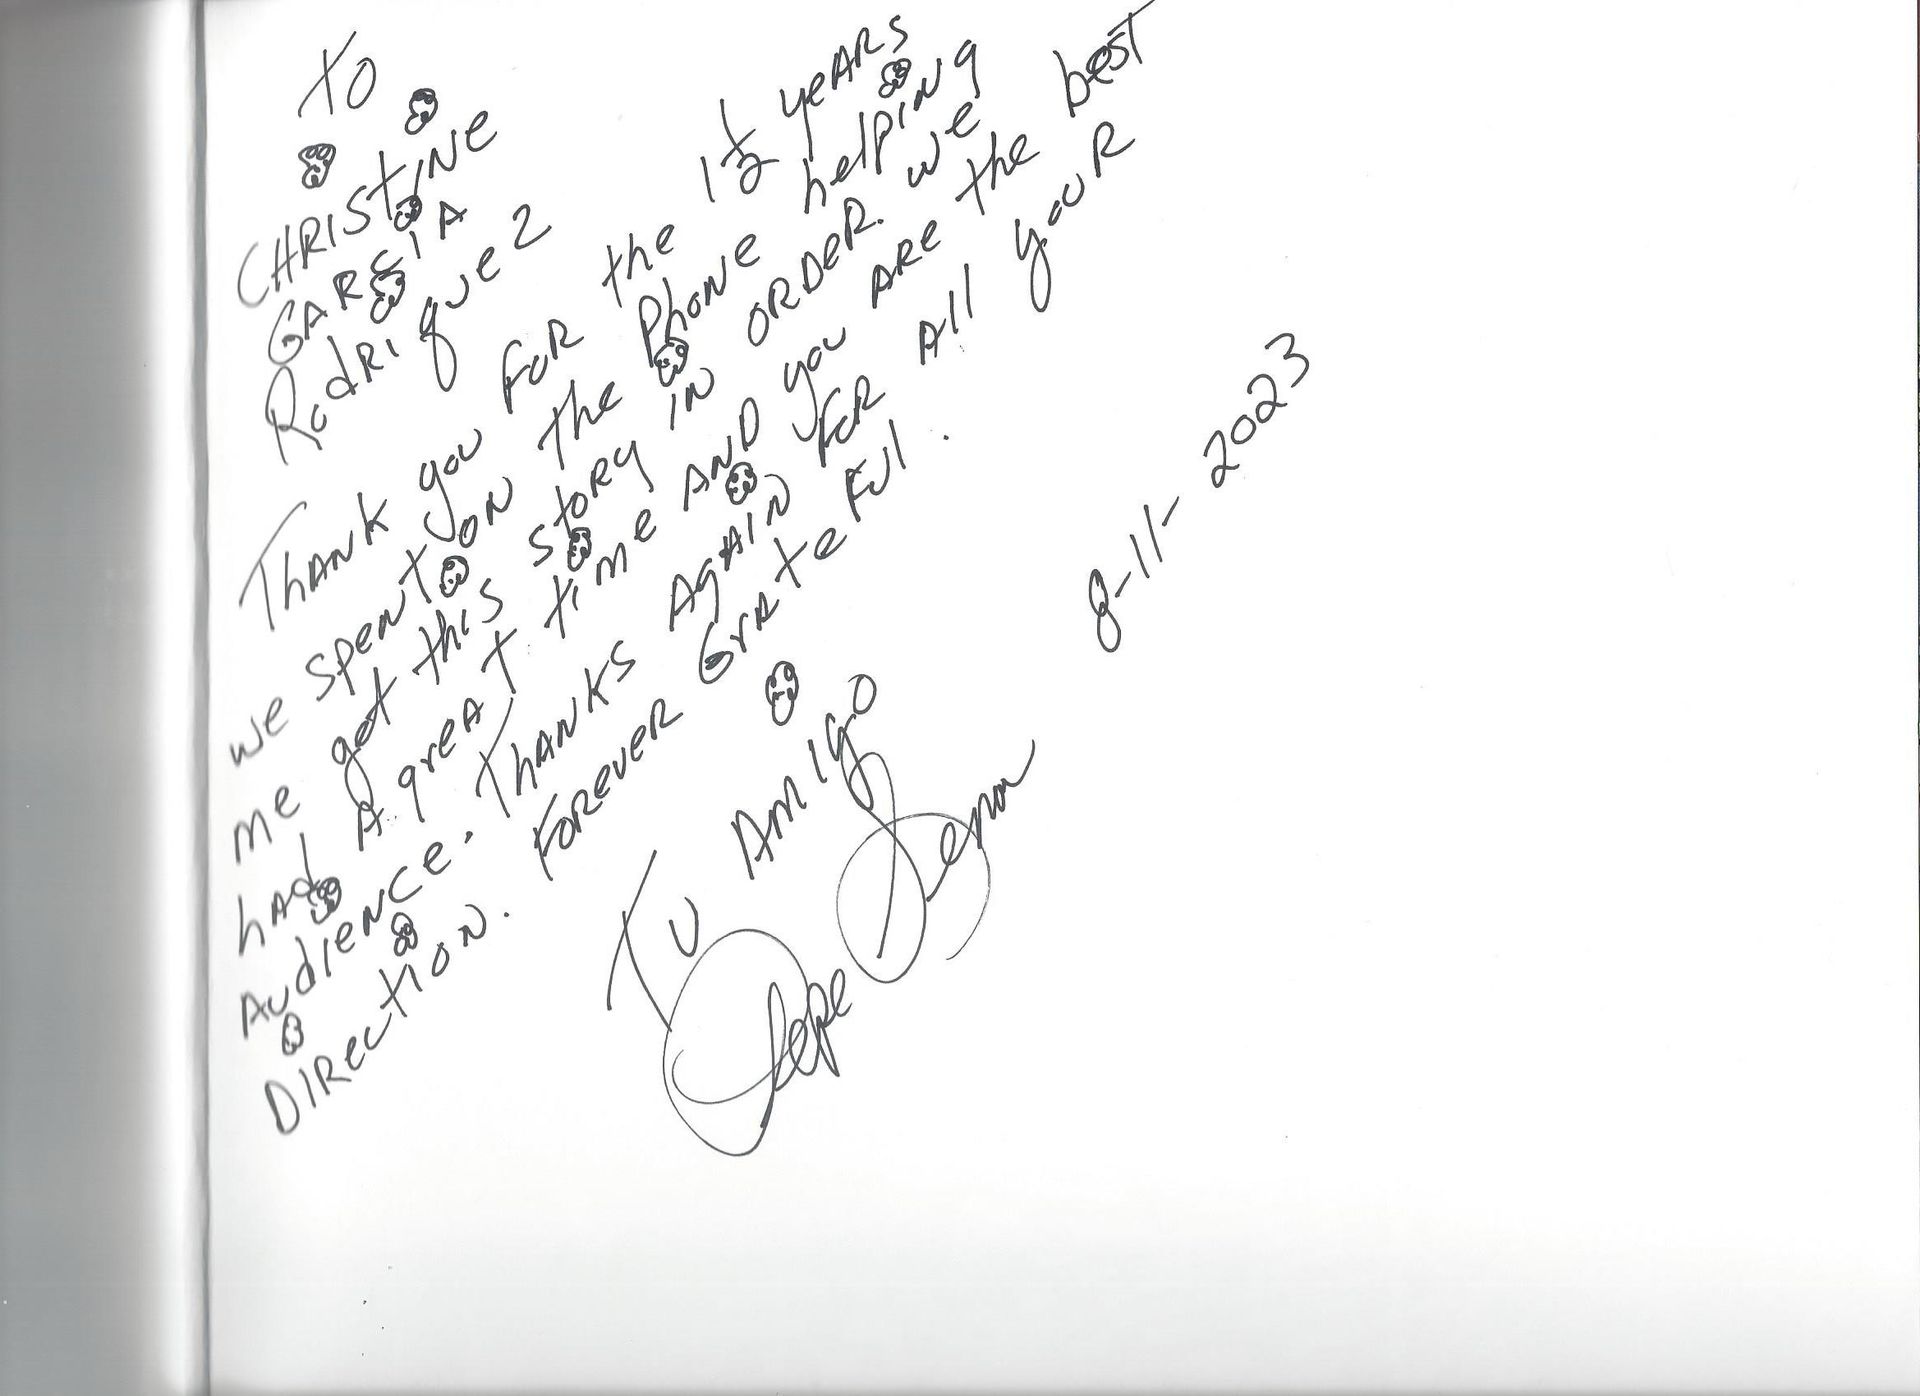 To
CHRISTINE
GARCIA
RodRiguez
THANK you FOR the 1½ years
we spent on the Phone helping
me get this story IN ORDER. we
had A great time AND you ARE the best
AudIENCE. THANKS AgAIN FOR All your
DIRection. FOREVER GrAteful.
TU AMIgO
Pepe Serna
8-11-2023